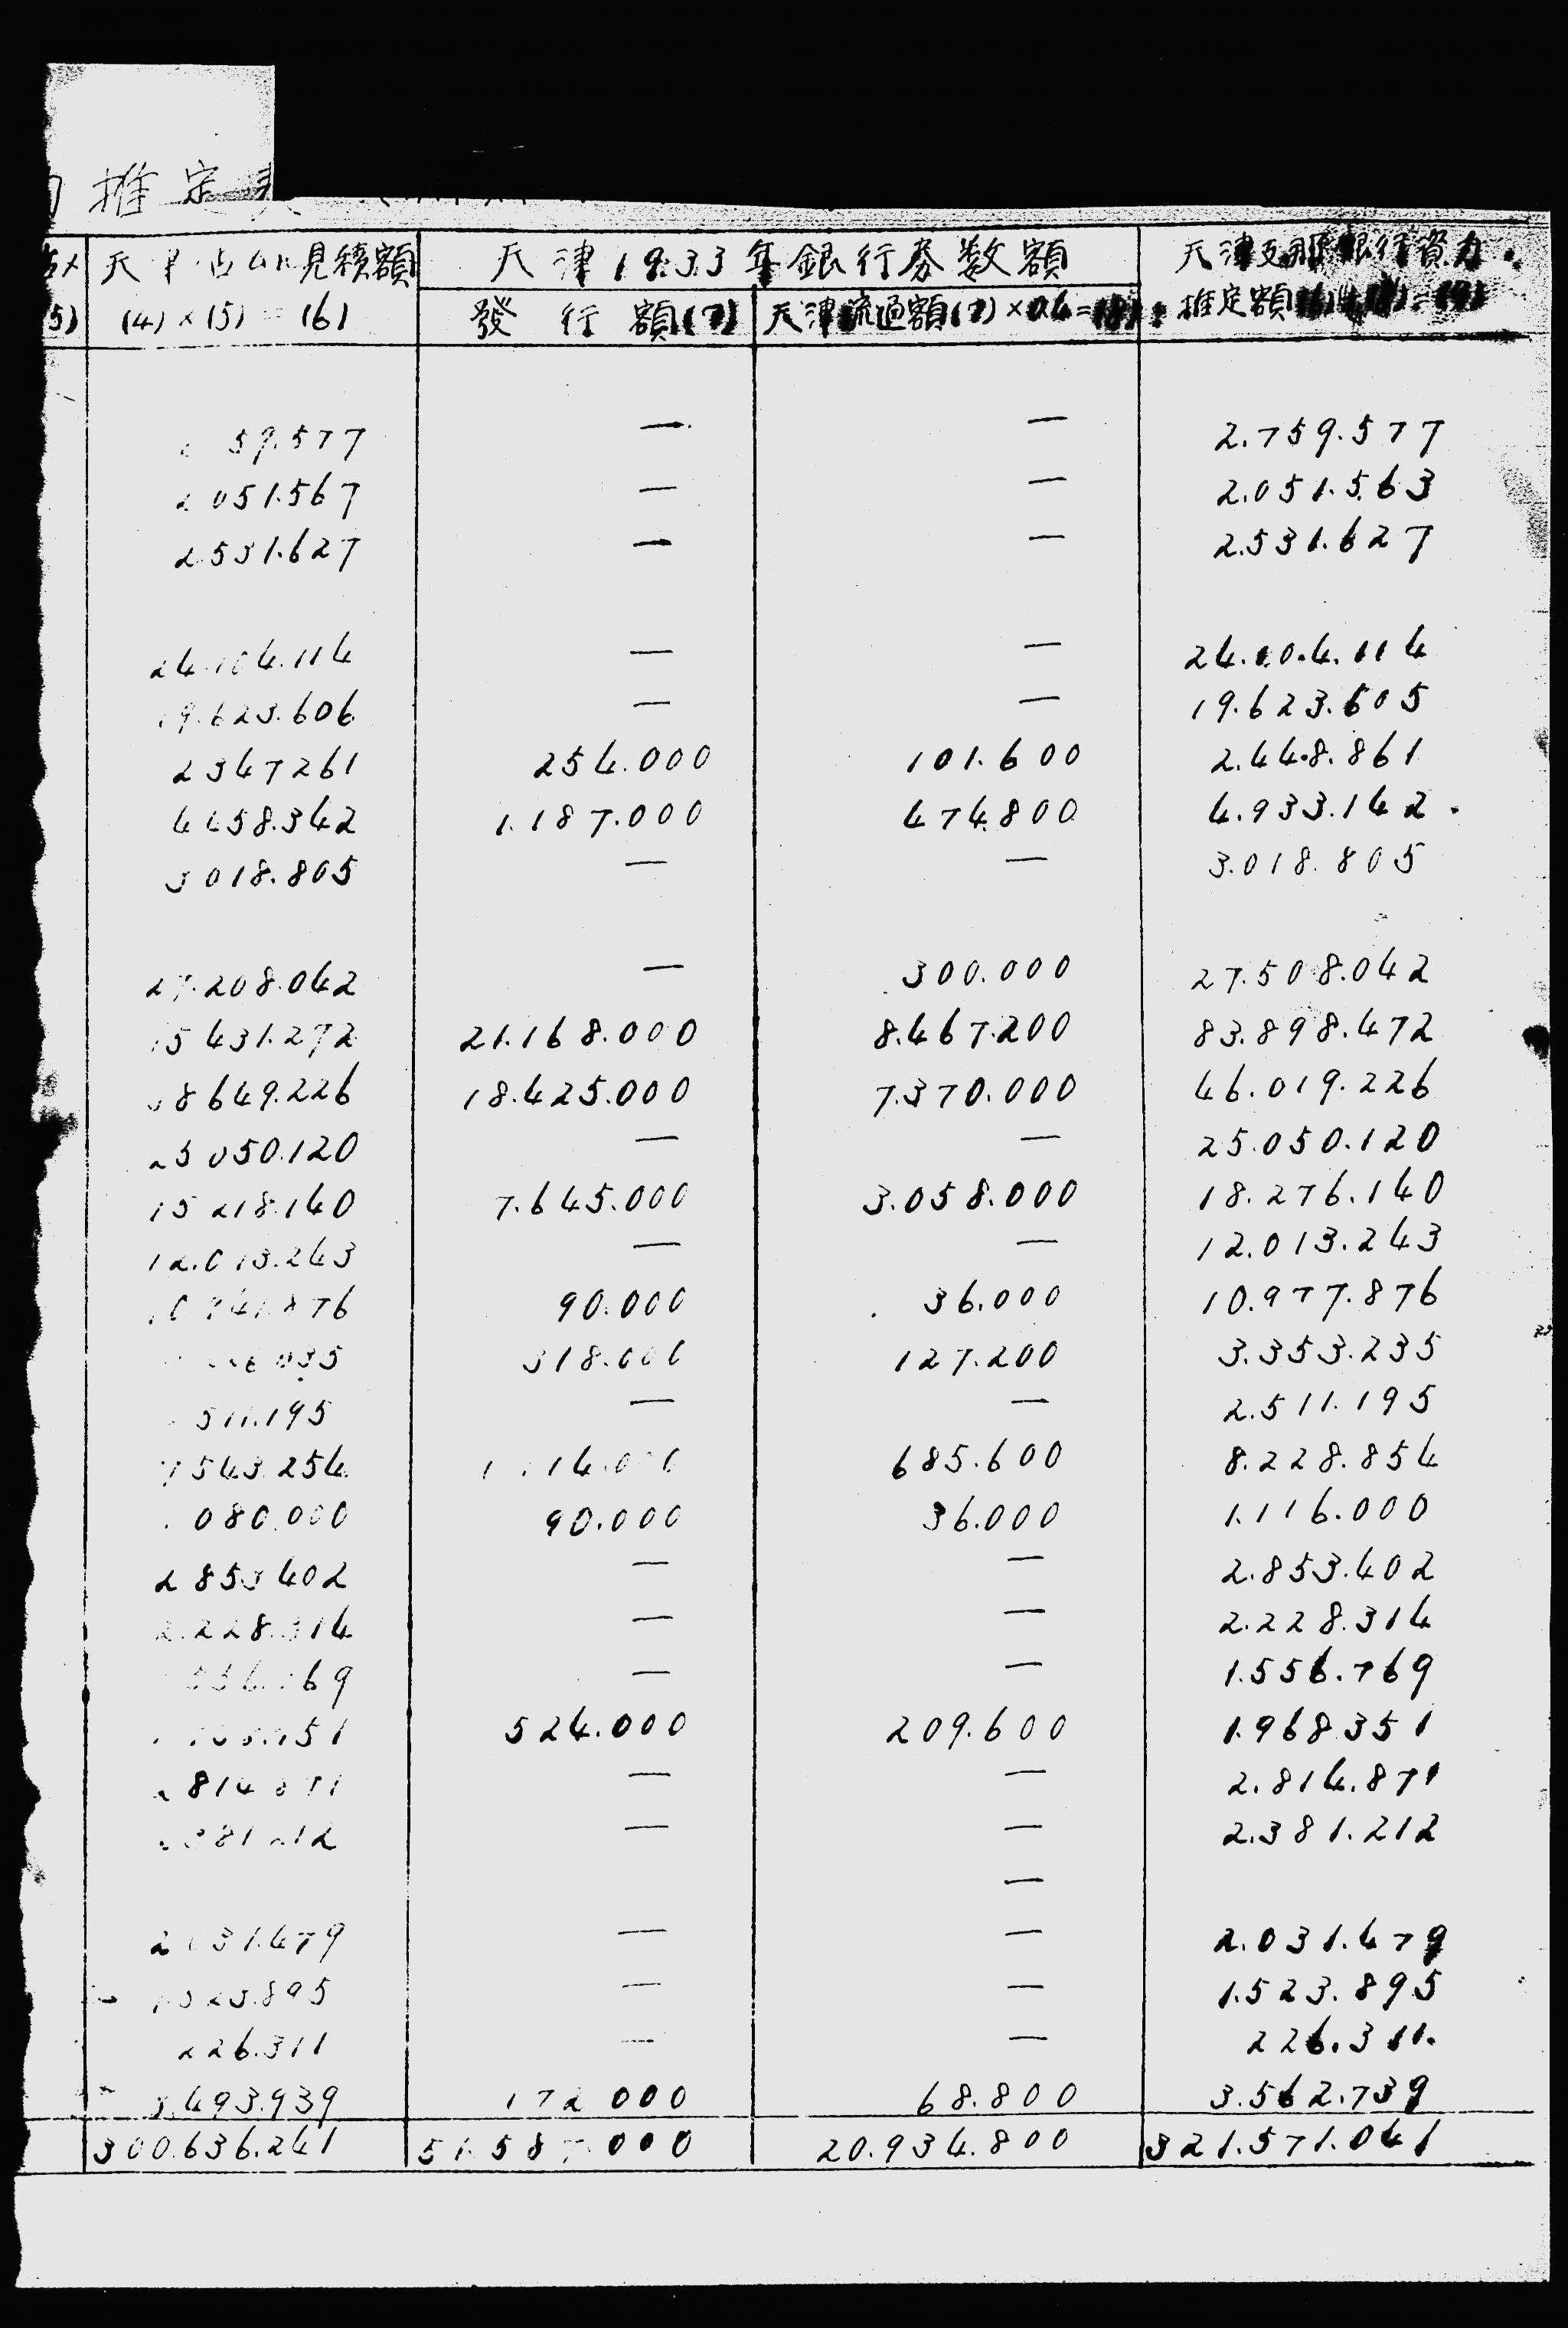 推定表
天津占 見積額
(4)×(5)=(6)
天津1933年銀行券数額
發行額(7)
天津流通額(7)×0.4=(8)
天津支那銀行資力
推定額(6)+(8)=(9)
59.577 — — 2.759.577
2 051.567 — — 2.051.563
2.531.627 — — 2.531.627
24.104.114 — — 24.104.114
19.623.606 — — 19.623.605
2347261 254.000 101.600 2.448.861
4458.342 1.187.000 474.800 4.933.142
3 018.805 — — 3.018.805
27.208.042 — 300.000 27.508.042
5 431.272 21.168.000 8.467.200 83.898.472
8 649.226 18.425.000 7.370.000 46.019.226
25 050.120 — — 25.050.120
15 218.140 7.645.000 3.058.000 18.276.140
12.013.243 — — 12.013.243
876 90.000 36.000 10.977.876
035 318.000 127.200 3.353.235
511.195 — — 2.511.195
7 543.254 685.600 8.228.854
080.000 90.000 36.000 1.116.000
2 853 402 — — 2.853.402
2.228.314 — — 2.228.314
69 — — 1.556.769
51 524.000 209.600 1.968.351
814 — — 2.814.871
381 212 — — 2.381.212
—
2 031.479 — — 2.031.479
1.523.895 — — 1.523.895
226.311 — — 226.311.
3.493.939 172 000 68.800 3.562.739
300.636.241 51.587.000 20.934.800 321.571.041